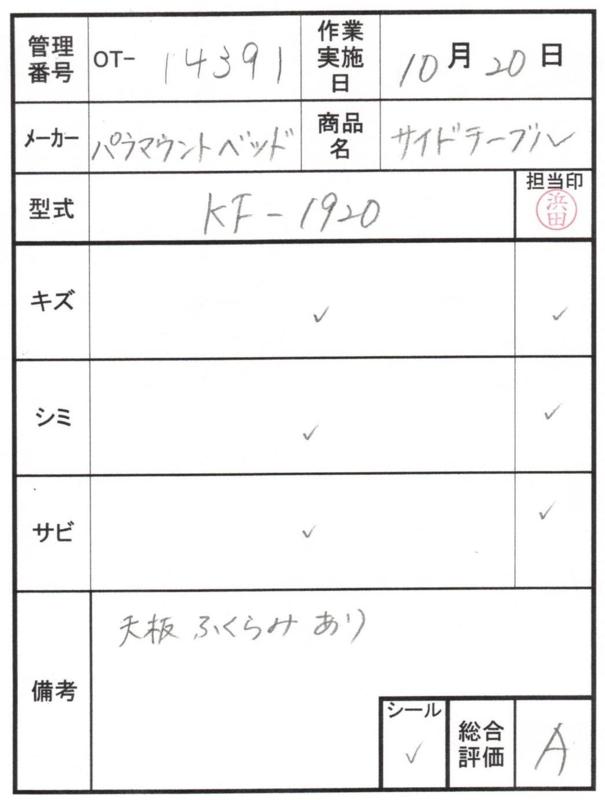 管理番号 OT- 14391 作業実施日 10月20日
メーカー パラマウントベッド 商品名 サイドテーブル
型式 KF-1920 担当印 浜田
キズ ✓ ✓
シミ ✓ ✓
サビ ✓ ✓
備考 天板 ふくらみ あり
シール ✓ 総合評価 A